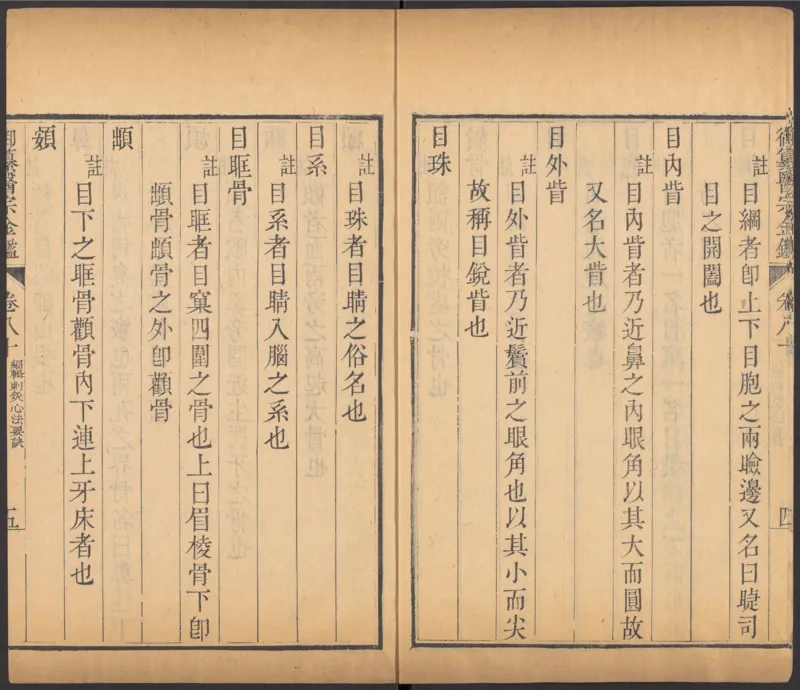 御纂醫宗金鑑
卷八十
四
註目綱者卽上下目胞之兩瞼邊又名曰睫司
目之開闔也
目內眥
註目內眥者乃近鼻之內眼角以其大而圓故
又名大眥也
目外眥
註目外眥者乃近鬢前之眼角也以其小而尖
故稱目銳眥也
目珠
註目珠者目睛之俗名也
目系
註目系者目睛入腦之系也
目眶骨
註目眶者目窠四圍之骨也上曰眉棱骨下卽
䪼骨䪼骨之外卽顴骨
䪼
註目下之眶骨顴骨內下連上牙床者也
頞
御纂醫宗金鑑
卷八十
編輯刺灸心法要訣
五